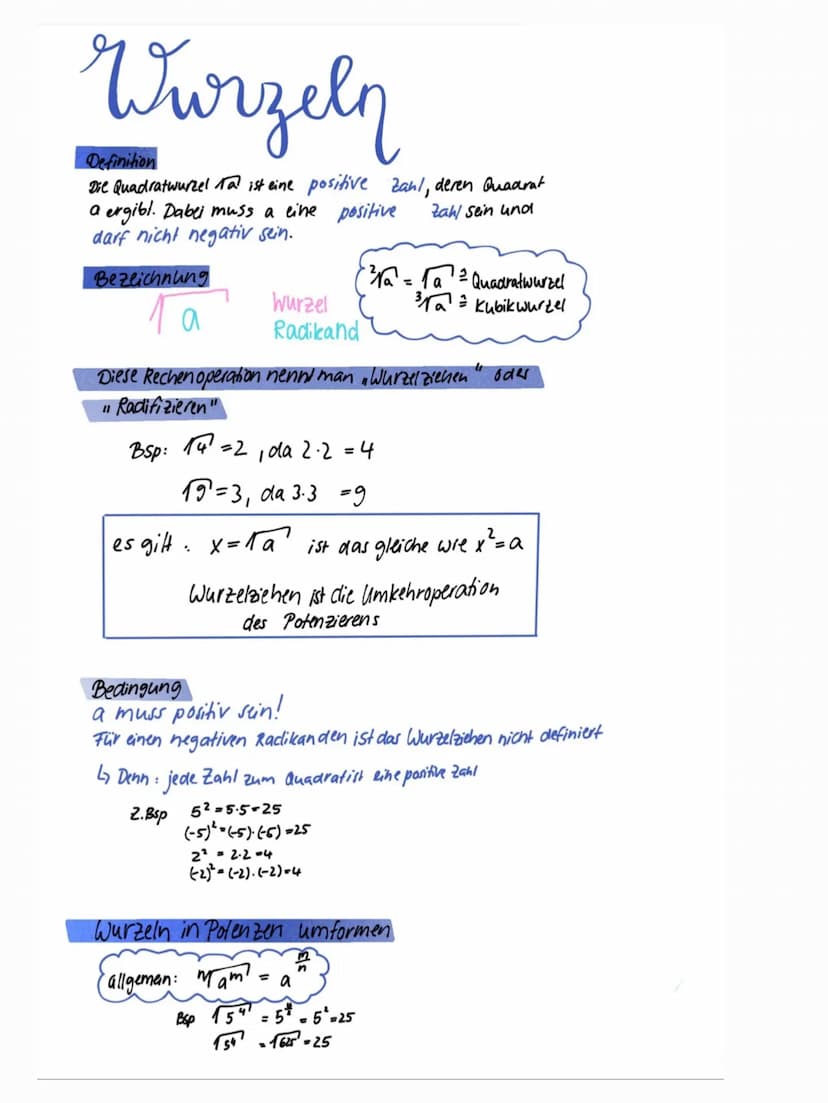 Wurzeln
Definition
Die Quadratwurzel √a ist eine positive Zahl, deren Quadrat
a ergibt. Dabei muss a eine positive Zahl sein und
darf nicht negativ sein.
Bezeichnung
²√a = √a ≙ Quadratwurzel
³√a ≙ Kubikwurzel
√a
Wurzel
Radikand
Diese Rechenoperation nennt man „Wurzelziehen" oder
„Radifizieren"
Bsp: √4 = 2, da 2·2 = 4
√9 = 3, da 3·3 = 9
es gilt: x = √a ist das gleiche wie x² = a
Wurzelziehen ist die Umkehroperation
des Potenzierens
Bedingung
a muss positiv sein!
Für einen negativen Radikanden ist das Wurzelziehen nicht definiert
↳ Denn: jede Zahl zum Quadrat ist eine positive Zahl
Z.Bsp 5² = 5·5 = 25
(-5)² = (-5)·(-5) = 25
2² = 2·2 = 4
(-2)² = (-2)·(-2) = 4
Wurzeln in Potenzen umformen
allgemein: ⁿ√aᵐ = a^(m/n)
Bsp √5⁴ = 5^(4/2) = 5² = 25
√5⁴ = √625 = 25